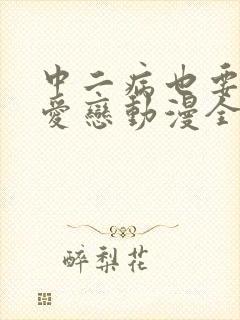 中二病也要
愛戀動漫全
醉梨花